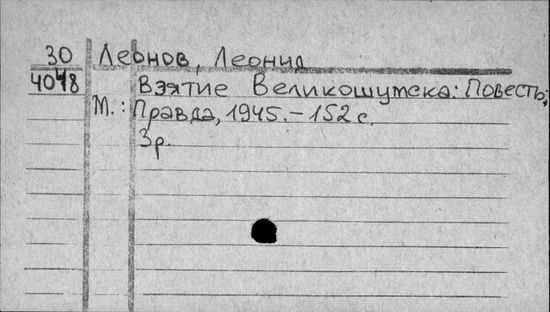 30 Леонов, Леонид
4048 Взятие Великошумска: Повесть;
М.: Правда, 1945. – 152 с.
3р.